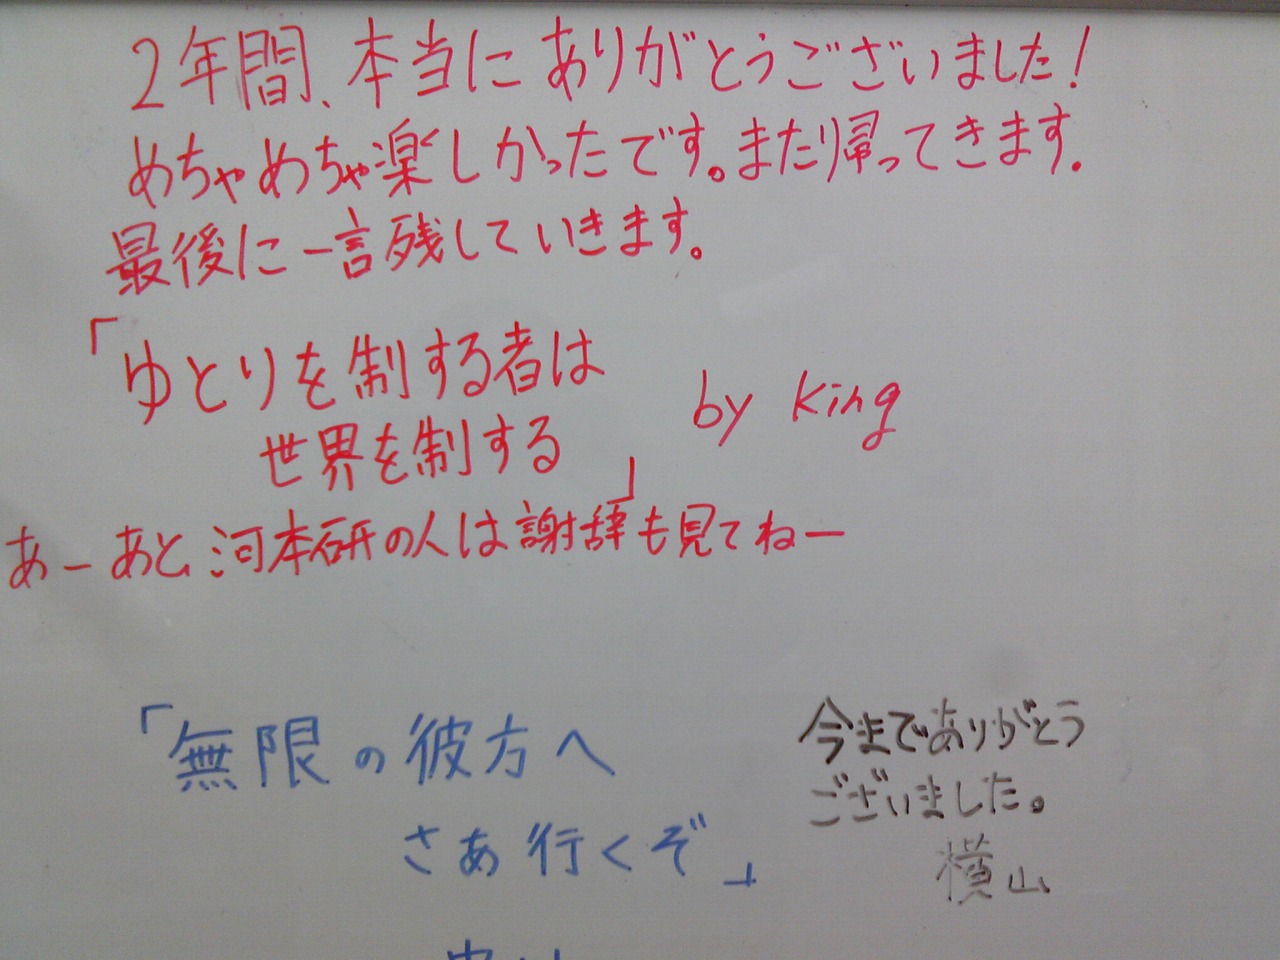 2年間、本当にありがとうございました!
めちゃめちゃ楽しかったです。また帰ってきます。
最後に一言残していきます。
「ゆとりを制する者は
世界を制する」
by King
あーあと河本研の人は謝辞も見てねー
「無限の彼方へ
さあ行くぞ」
今までありがとう
ございました。
横山